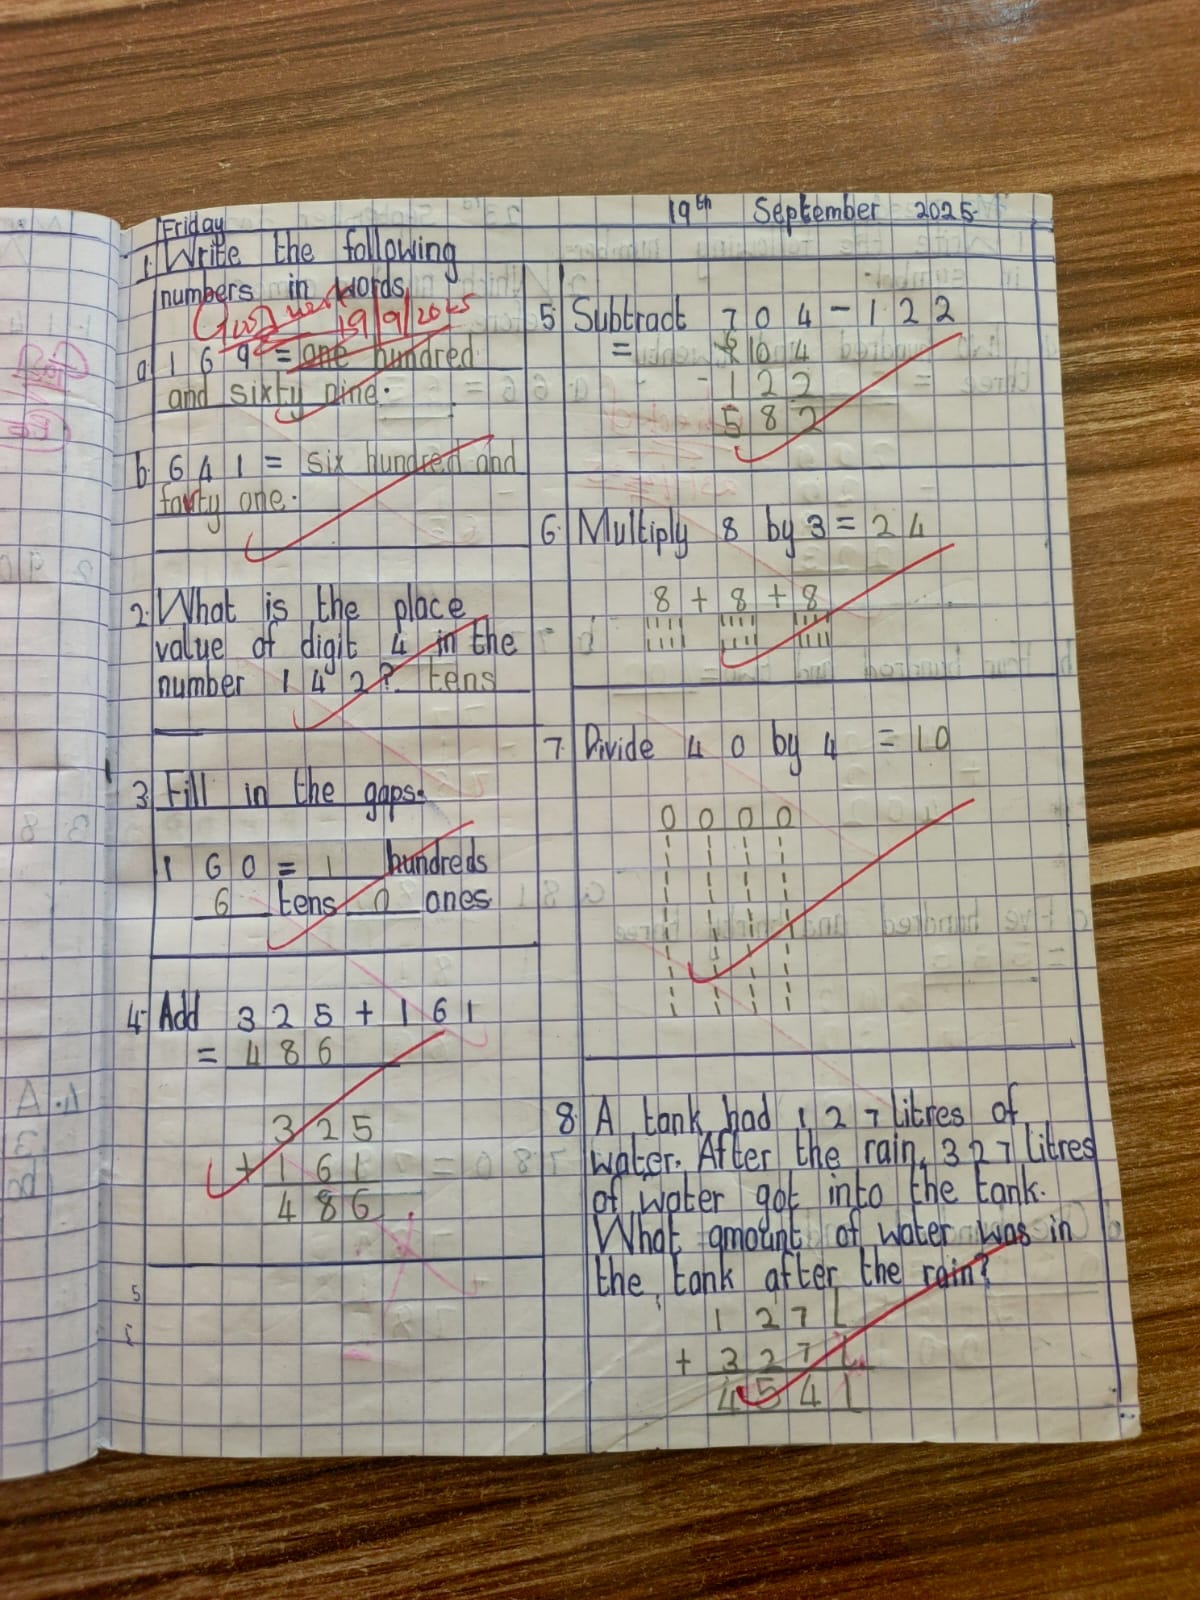 Friday 19th September 2025.
1. Write the following
numbers in words
Good work
19/9/2025
a. 169 = one hundred
and sixty nine.
b. 641 = six hundred and
forty one.
2. What is the place
value of digit 4 in the
number 142? tens
3. Fill in the gaps.
160 = 1 hundreds
6 tens 0 ones
4. Add 325 + 161
= 486
325
+ 161
486
5
5. Subtract 704 - 122
=
104
- 122
582
6. Multiply 8 by 3 = 24
8 + 8 + 8
7. Divide 40 by 4 = 10
0 0 0 0
8. A tank had 127 litres of
water. After the rain, 327 litres
of water got into the tank.
What amount of water was in
the tank after the rain?
127L
+ 327L
454L